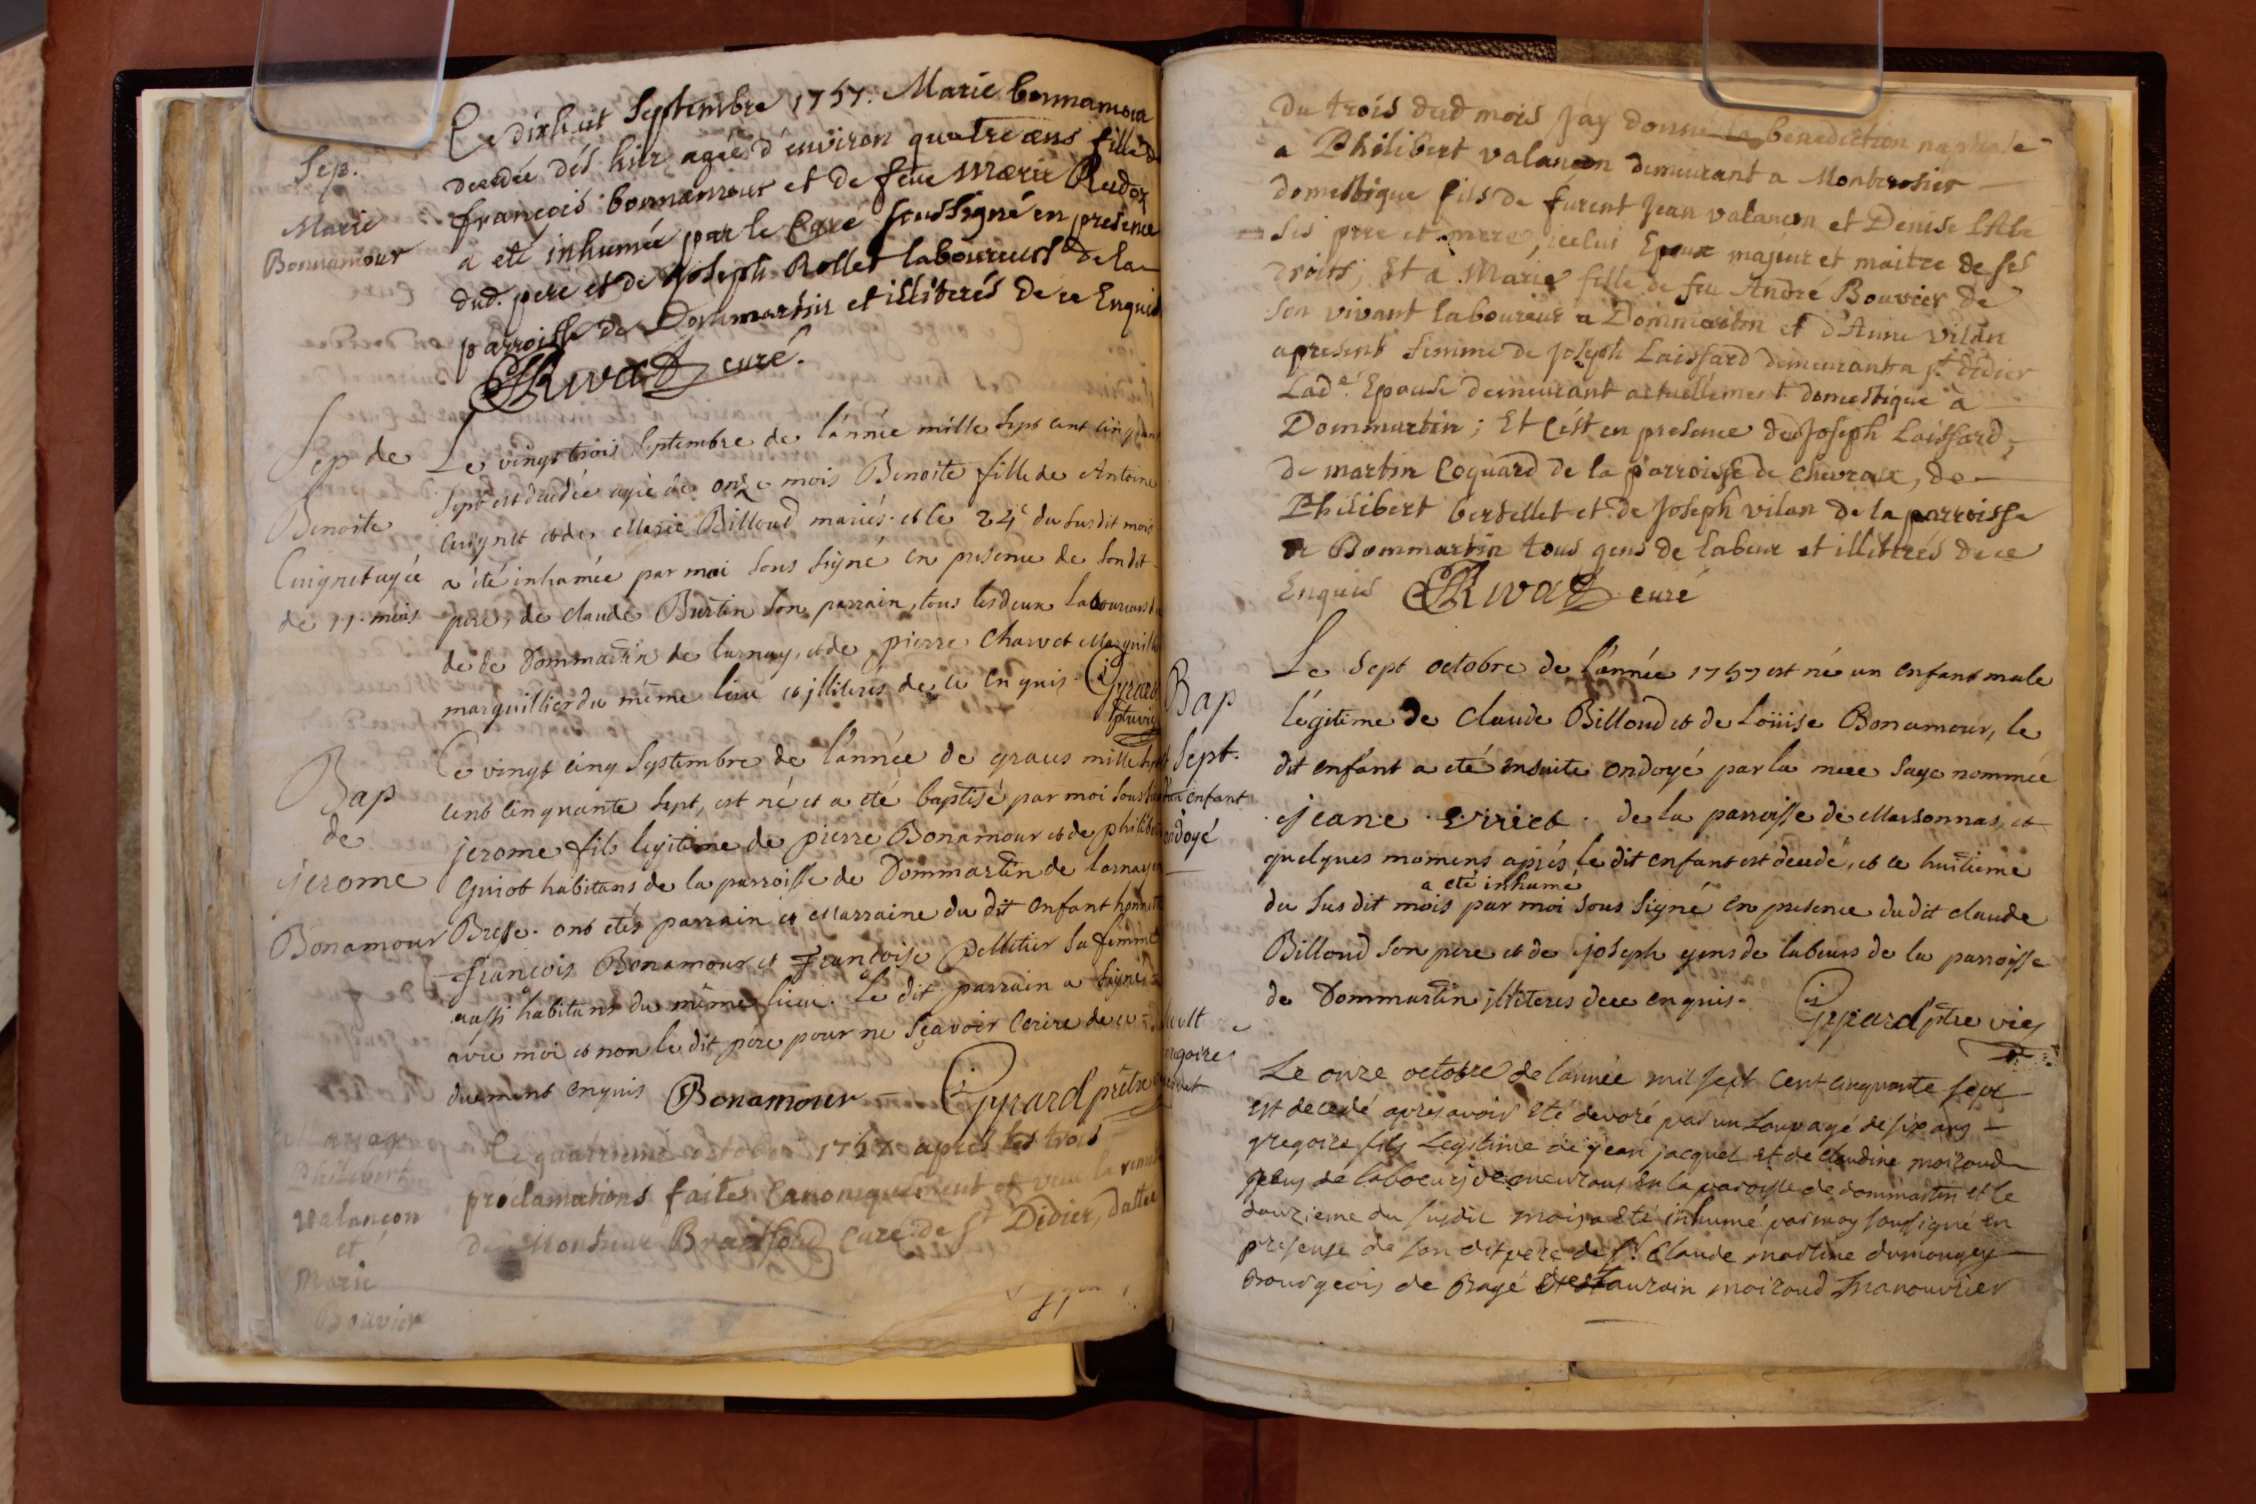 Ce dixhuit Septembre 1757. Marie bonnamour
decedée dés hier agée d'environ quatre ans fille de
françois bonnamour et de feue Marie
a eté inhumée par le Curé soussigné en presence
dud. pere et de Joseph Rollet laboureurs de la
parroisse de Dommartin et illiterés de ce Enquis
Rivat curé.
Sep.
Marie
Bonnamour
Le vingt trois septembre de l'année mille sept cent cinquante
sept est decedée agée de onze mois Benoite fille de Antoine
Cuignet et de Marie Billoud mariés. et le 24e du susdit mois
a été inhumée par moi sous signé en presence de son dit
pere, de claude Burtin son parrain, tous les deux laboureurs
de Dommartin de Larnay, et de pierre Charvet
marguillier du même lieu et jlliteres de ce enquis Gyrard
Sep de
Benoite
Cuignet agée
de 11. mois
Ce vingt cinq Septembre de l'année de graces mille sept
cent cinquante sept, est né et a eté baptisé par moi
jerome fils legitime de pierre Bonamour et de
Guiot habitans de la parroisse de Dommartin de Larnay en
Bresse. ont etés parrain et Marraine du dit enfant
françois Bonamour et Françoise Pelletier sa femme
aussi habitans du même lieu. Le dit parrain a signé
avec moi et non le dit pere pour ne sçavoir écrire de ce
duement enquis Bonamour Gyrard prêtre
Bap
de
jerome
Bonamour
Le quatrieme octobre 1757 après les trois
proclamations faites Canoniquement et veu la remise
de Monsieur curé de St Didier, datée
Mariage
Philibert
Valançon
et
Marie
Bouvier
Du trois dud mois Jay donné la benediction nuptiale
a Philibert valançon demeurant a Montrosier
domestique fils de furent Jean valançon et Denise
ses pere et mere, icelui Epoux majeur et maitre de ses
droits; Et a Marie fille de feu André Bouvier de
son vivant laboureur a Dommartin et d'Anne vilan
apresent femme de Joseph Laissard demeurant a St didier
Lade. Epouse demeurant actuellement domestique à
Dommartin; Et c'est en presence de Joseph Laissard,
de martin Coquard de la parroisse de Chevroux, de
Philibert bertellet et de Joseph vilan de la parroisse
de Dommartin tous gens de labeur et illiterés de ce
Enquis Rivat curé
Le Sept octobre de l'année 1757 est né un enfant male
légitime de claude Billoud et de Loüise Bonamour, le
dit enfant a eté ensuite ondoyé par la mere sage nommée
jeane viriet de la parroisse de Marsonnas, et
quelques momens aprés le dit enfant est decedé, et ce huitieme
a eté inhumé
du susdit mois par moi sous signé en presence dudit claude
Billoud son pere et de joseph gens de labeurs de la parroisse
de Dommartin jlliteres de ce enquis. Gyrard ptre vic
Bap
Sept.
enfant
ondoyé
Le onze octobre de l'année mil sept Cent cinquante sept
est decedé apres avoir eté devoré par un Loup agé de six ans
gregoire fils Legitime de jean jacquet et de claudine moiroud
gens de labeurs demeurans en la paroisse de dommartin et le
douzieme du susdit mois a eté inhumé par moy soussigné en
presense de son dit pere de Sr. Claude martine dumongey
bourgeois de Bagé et de taurain moiroud manouvrier